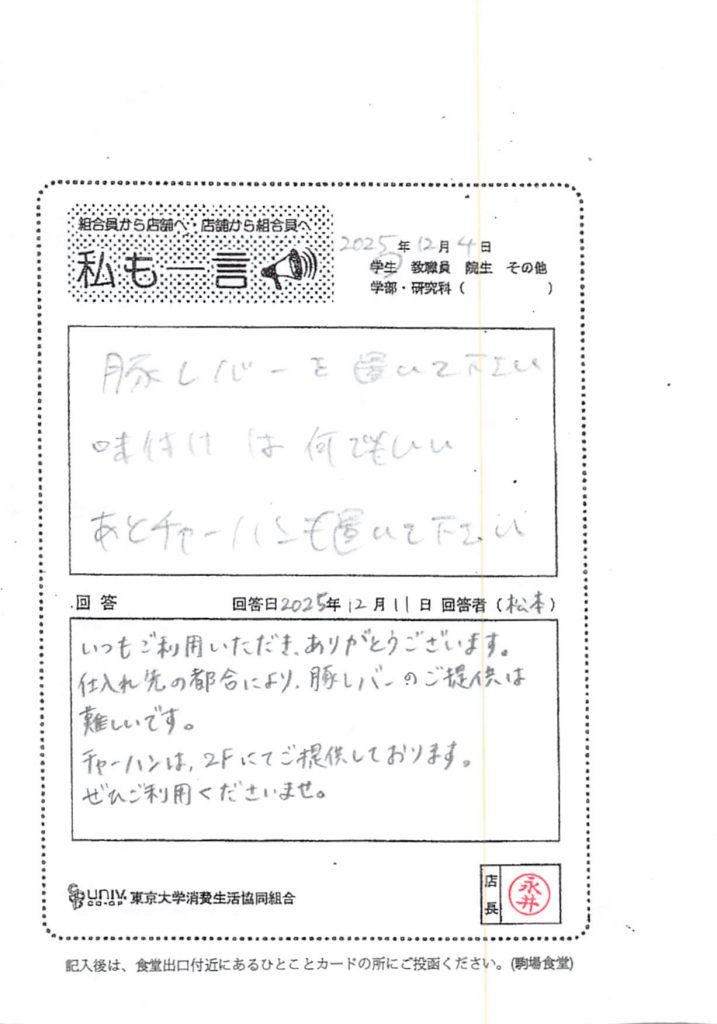 組合員から店舗へ・店舗から組合員へ
私も一言
2025年12月4日
学生 教職員 院生 その他
学部・研究科( )
豚レバーを置いて下さい
味付けは何でもいい
あとチャーハンも置いて下さい
回答 回答日2025年12月11日 回答者(松本)
いつもご利用いただき、ありがとうございます。
仕入れ先の都合により、豚レバーのご提供は
難しいです。
チャーハンは、2Fにてご提供しております。
ぜひご利用くださいませ。
UNIV. CO-OP 東京大学消費生活協同組合
店長 永井
記入後は、食堂出口付近にあるひとことカードの所にご投函ください。(駒場食堂)